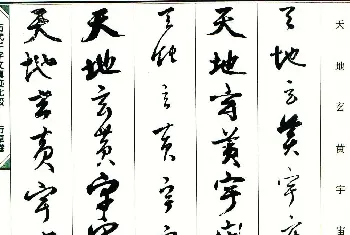 天地玄黄宇宙
天地玄黄宇
天地玄黄宇
天地玄黄宇
天地玄黄宇
天地玄黄宇